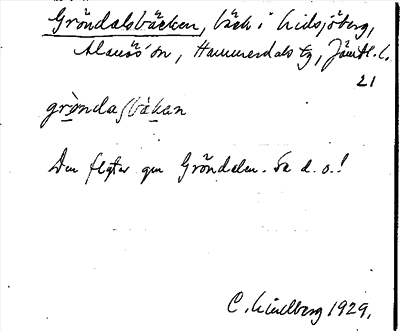 Gröndalsbäcken, bäck i Lidsjöberg,
Alanäs s:n, Hammerdals tg, Jämtl. l.
21
grǿndaʃbäkan
Den flyter gm Gröndalen. Se d. o.!
C. Lindberg 1929.